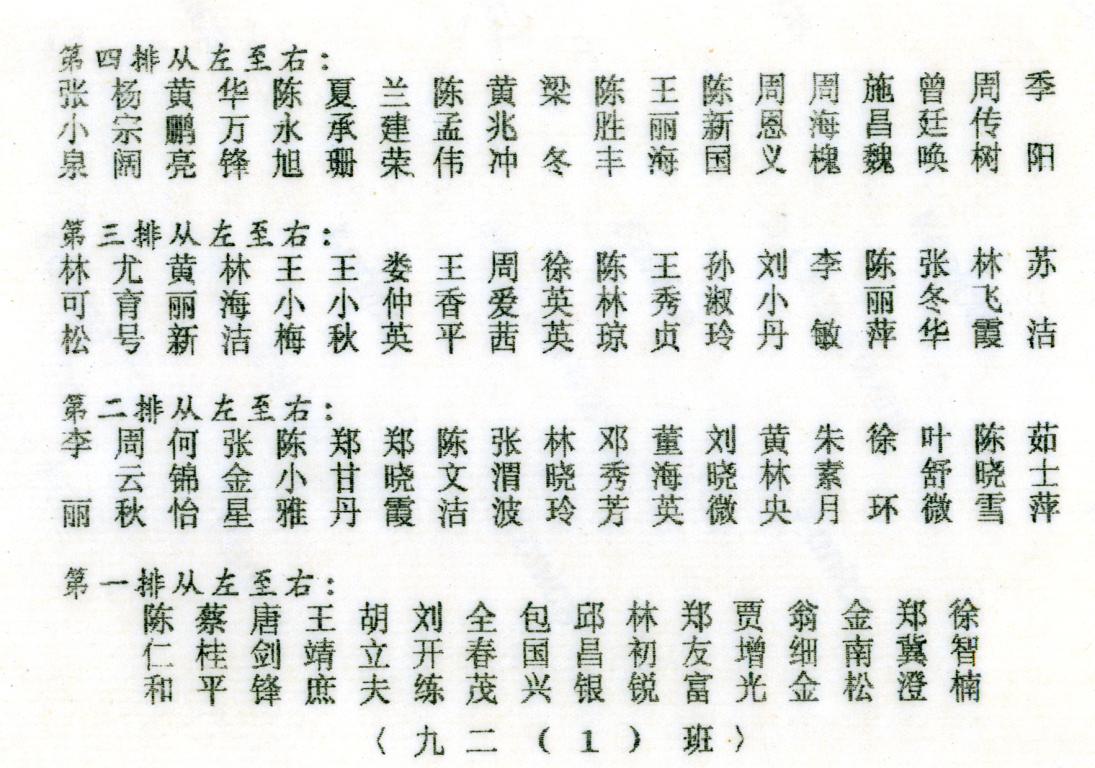 第四排从左至右：
张小泉 杨宗阔 黄鹏亮 华万锋 陈永旭 夏承珊 兰建荣 陈孟伟 黄兆冲 梁冬 陈胜丰 王丽海 陈新国 周恩义 周海槐 施昌魏 曾廷唤 周传树 季阳
第三排从左至右：
林可松 尤育号 黄丽新 林海洁 王小梅 王小秋 娄仲英 王香平 周爱茜 徐英英 陈林琼 王秀贞 孙淑玲 刘小丹 李敏 陈丽萍 张冬华 林飞霞 苏洁
第二排从左至右：
李丽 周云秋 何锦怡 张金星 陈小雅 郑甘丹 郑晓霞 陈文洁 张渭波 林晓玲 邓秀芳 董海英 刘晓微 黄林央 朱素月 徐环 叶舒微 陈晓雪 茹士萍
第一排从左至右：
陈仁和 蔡桂平 唐剑锋 王靖庶 胡立夫 刘开练 全春茂 包国兴 邱昌银 林初锐 郑友富 贾增光 翁细金 金南松 郑冀澄 徐智楠
〈九二(1)班〉